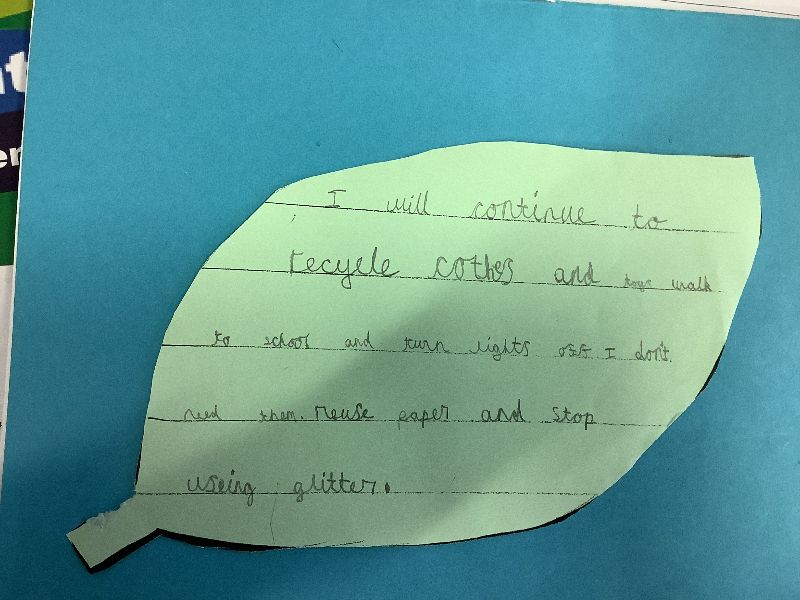 I will continue to
recycle cothes and toys walk
to school and turn lights off I don't
need them. Reuse paper and stop
useing glitter.